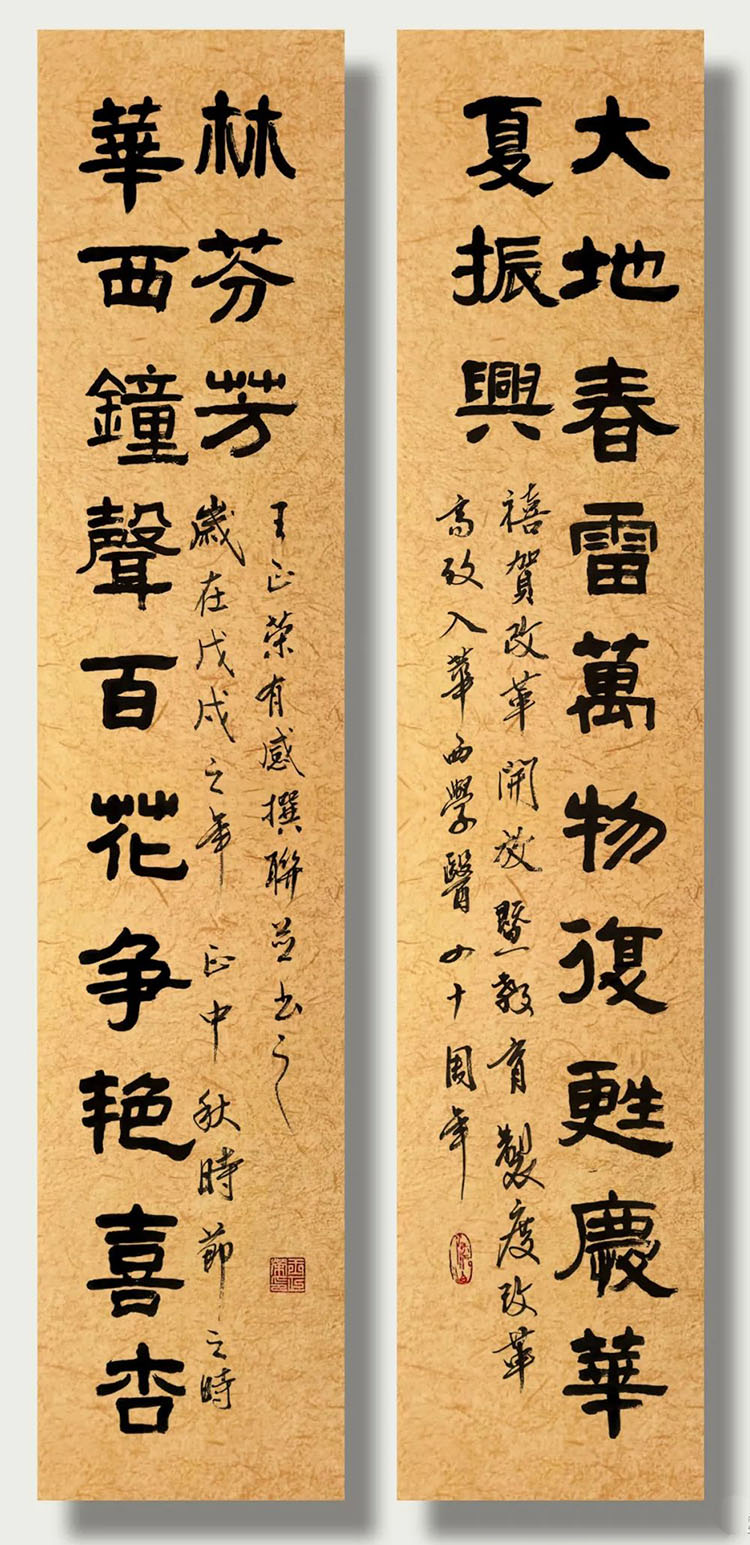 大地春雷萬物復甦慶華
夏振興
禧賀改革開放暨教育製度改革
高攷入華西學醫四十周年
華西鐘聲百花争艳喜杏
林芬芳
王正荣有感撰聯並书之
歲在戊戌之年 正中秋時節之時